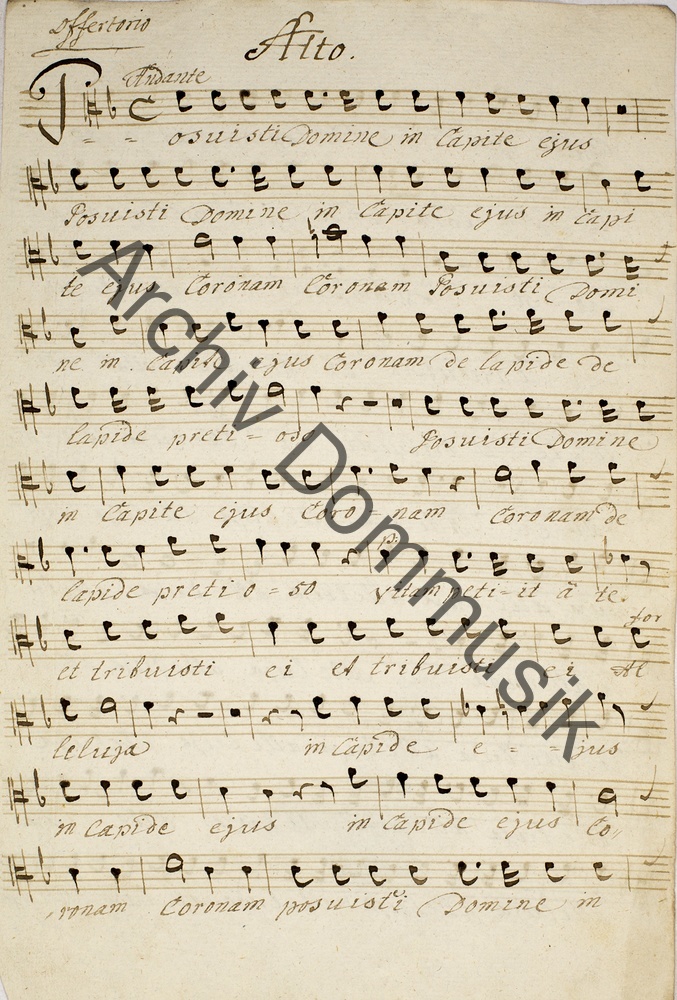 Offertorio
Alto.
Andante
P = = osuisti Domine in Capite ejus
Posuisti Domine in Capite ejus in Capi
te ejus Coronam Coronam Posuisti Domi
ne in Capite ejus Coronam de lapide de
lapide preti = oso Posuisti Domine
in Capite ejus Coro = nam Coronam de
p:
lapide preti o = so Vitam peti = it à te.
for
et tribuisti ei et tribuisti ei Al
leluja in Capide e = = jus
in Capide ejus in Capide ejus Co,,
,ronam Coronam posuisti Domine in
Archiv Dommusik